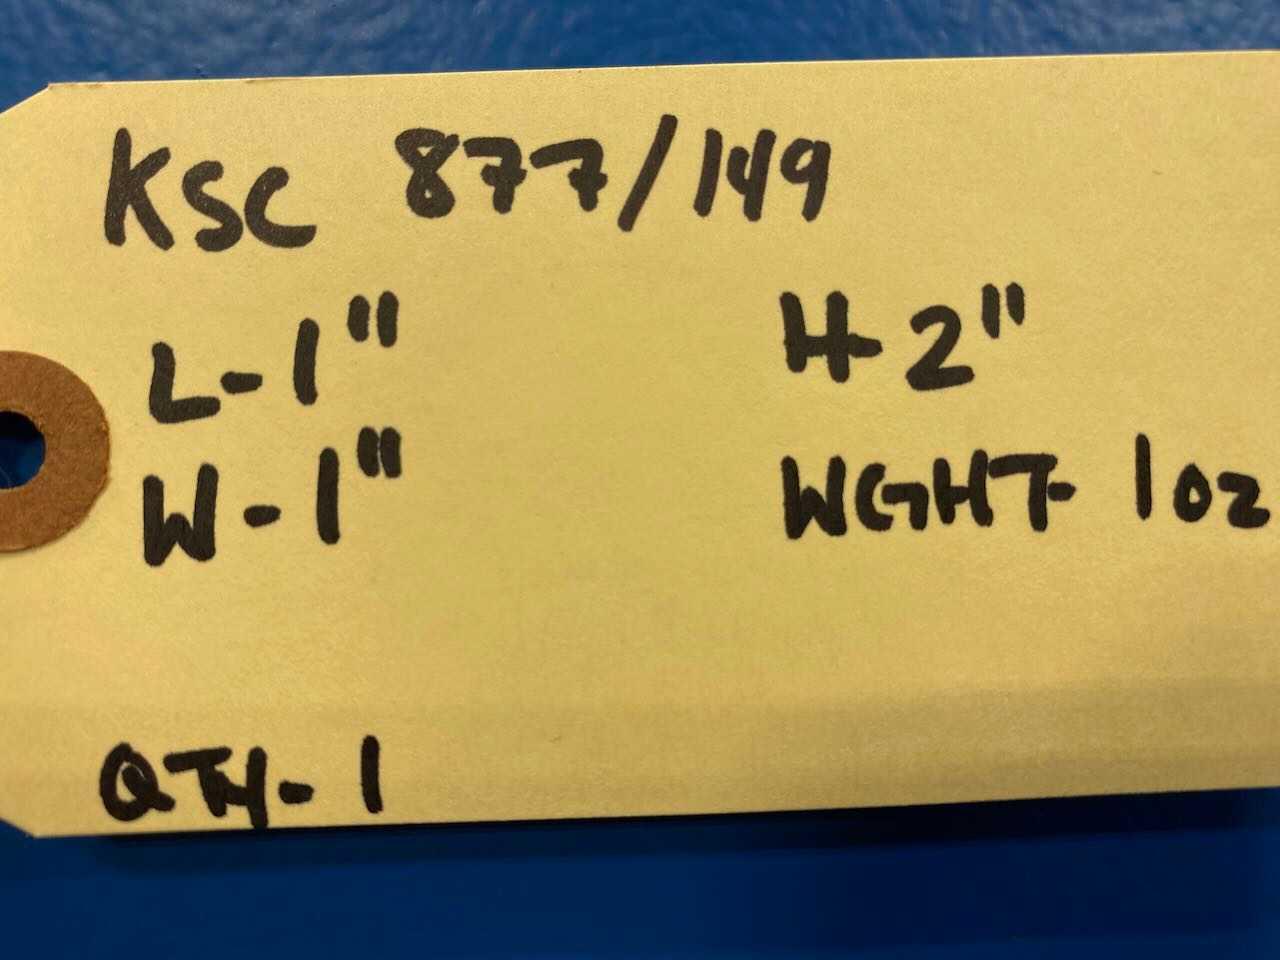 KSC 877/149
L-1" H-2"
W-1" WGHT- 1oz
QTY- 1